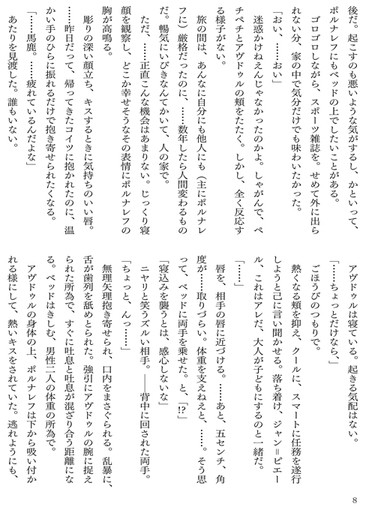 後だ。起こすのも悪いような気がするし、かといって、
ポルナレフにもベッドの上でしたいことがある。
ゴロゴロしながら、スポーツ雑誌を。せめて外に出ら
れない分、家の中で気分だけでも味わいたかった。
「おい、……おい」
迷惑かけねえんじゃなかったのかよ。しゃがんで、ペ
チペチとアヴドゥルの頬をたたく。しかし、全く反応す
る様子がない。
旅の間は、あんなに自分にも他人にも（主にポルナレ
フに）厳格だったのに、……数年したら人間変わるもの
だ。暢気にいびきなんてかいて、人の家で。
ただ、……正直こんな機会はあまりない。じっくり寝
顔を観察し、どこか幸せそうなその表情にポルナレフの
胸が高鳴る。
彫りの深い顔立ち、キスするときに気持ちのいい唇。
……昨日だって、帰ってきたコイツに抱かれたのに、温
かい手のひらに振れるだけで抱き寄せられたくなる。
「……馬鹿。……疲れているんだよな」
あたりを見渡した。誰もいない。
アヴドゥルは寝ている。起きる気配はない。
「……ちょっとだけなら、」
ごほうびのつもりで。
熱くなる頬を抑え、クールに、スマートに任務を遂行
しようと己に言い聞かせる。落ち着け、ジャン＝ピエー
ル、これはアレだ、大人が子どもにするのと一緒だ。
「……」
唇を、相手の唇に近づける。……あと、五センチ、角
度が……取りづらい。体重を支えねえと、……。そう思
って、ベッドに両手を乗せた。と、「⁉」
「寝込みを襲うとは、感心しないな」
ニヤリと笑うズルい相手。――背中に回された両手。
「ちょっと、んっ……」
無理矢理抱き寄せられ、口内をまさぐられる。乱暴に、
舌が歯列を舐めとられた。強引にアヴドゥルの腕に捉え
られた所為で、すぐに吐息と吐息が混ざり合う距離にな
る。ベッドはきしむ、男性二人の体重の所為で。
アヴドゥルの身体の上、ポルナレフは下から吸い付か
れる様にして、熱いキスをされていた。逃れようにも、
8